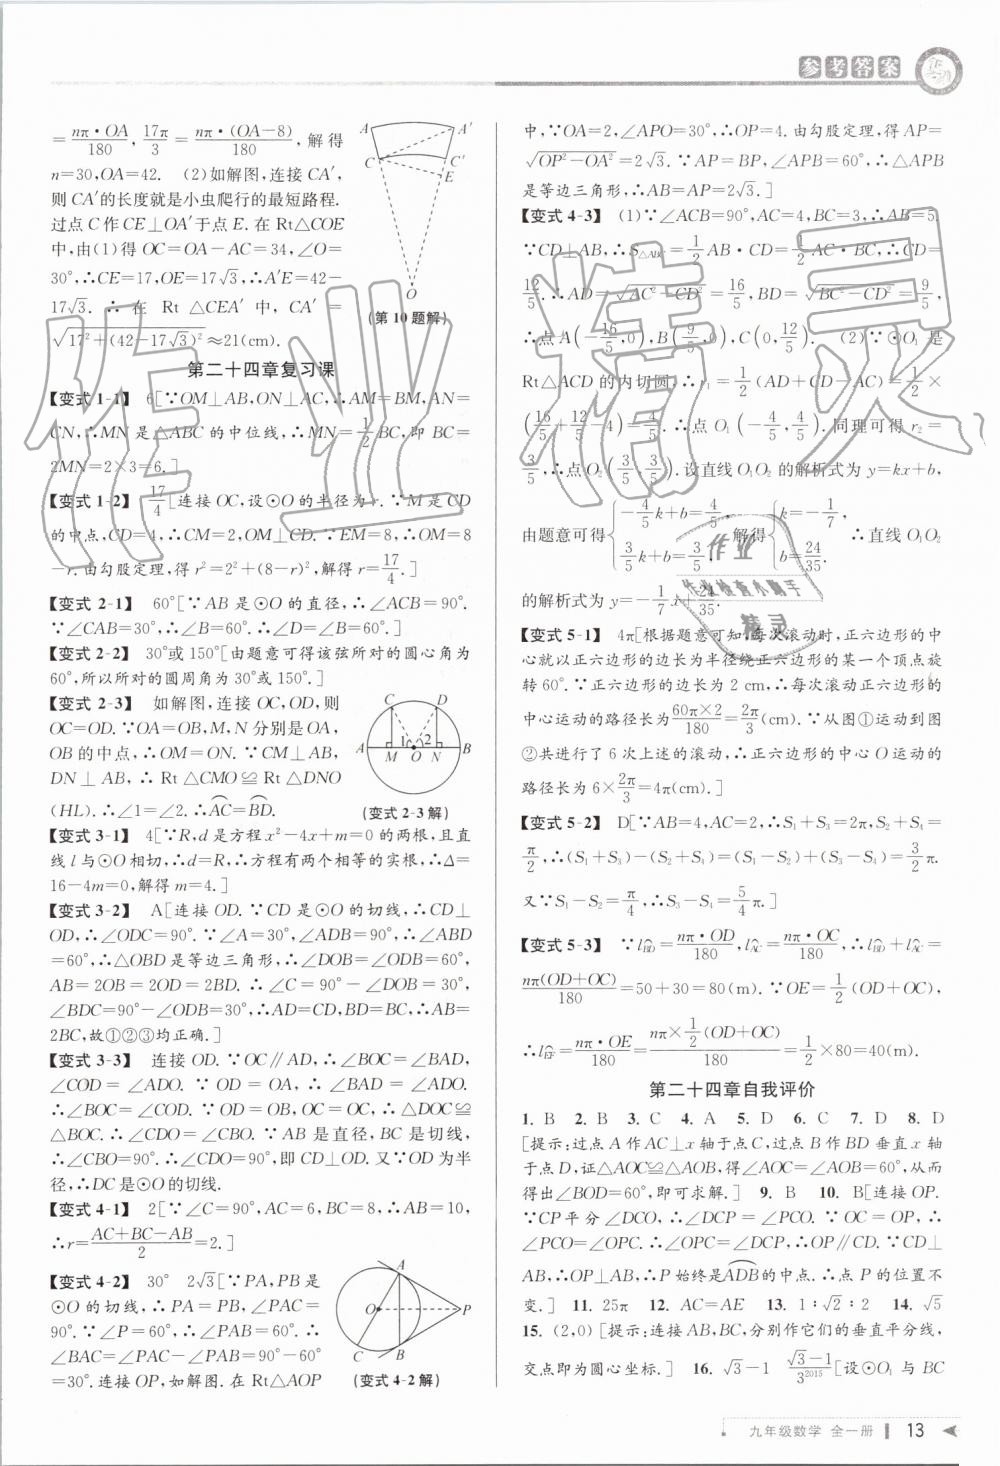 参考答案
=nπ·OA/180, 17π/3=nπ·(OA-8)/180, 解得
n=30,OA=42. (2)如解图,连接CA′,
则CA′的长度就是小虫爬行的最短路程.
过点C作CE⊥OA′于点E.在Rt△COE
中,由(1)得OC=OA-AC=34,∠O=
30°,∴CE=17,OE=17√3,∴A′E=42-
17√3. ∴在Rt△CEA′中,CA′=
√(17²+(42-17√3)²)≈21(cm).
A A′ C C′ E O
(第10题解)
第二十四章复习课
【变式1-1】 6[∵OM⊥AB,ON⊥AC,∴AM=BM,AN=
CN,∴MN是△ABC的中位线,∴MN=1/2BC,即BC=
2MN=2×3=6.]
【变式1-2】 17/4[连接OC,设⊙O的半径为r.∵M是CD
的中点,CD=4,∴CM=2,OM⊥CD.∵EM=8,∴OM=8
-r.由勾股定理,得r²=2²+(8-r)²,解得r=17/4.]
【变式2-1】 60°[∵AB是⊙O的直径,∴∠ACB=90°.
∵∠CAB=30°,∴∠B=60°.∴∠D=∠B=60°.]
【变式2-2】 30°或150°[由题意可得该弦所对的圆心角为
60°,所以所对的圆周角为30°或150°.]
【变式2-3】 如解图,连接OC,OD,则
OC=OD.∵OA=OB,M,N分别是OA,
OB的中点,∴OM=ON.∵CM⊥AB,
DN⊥AB,∴Rt△CMO≌Rt△DNO
(HL).∴∠1=∠2.∴A͡C=B͡D.
C D A M 1 O 2 N B
(变式2-3解)
【变式3-1】 4[∵R,d是方程x²-4x+m=0的两根,且直
线l与⊙O相切,∴d=R,∴方程有两个相等的实根,∴Δ=
16-4m=0,解得m=4.]
【变式3-2】 A[连接OD.∵CD是⊙O的切线,∴CD⊥
OD,∴∠ODC=90°.∵∠A=30°,∠ADB=90°,∴∠ABD
=60°,∴△OBD是等边三角形,∴∠DOB=∠ODB=60°,
AB=2OB=2OD=2BD.∴∠C=90°-∠DOB=30°,
∠BDC=90°-∠ODB=30°,∴AD=CD,BD=BC,∴AB=
2BC,故①②③均正确.]
【变式3-3】 连接OD.∵OC∥AD,∴∠BOC=∠BAD,
∠COD=∠ADO.∵OD=OA,∴∠BAD=∠ADO.
∴∠BOC=∠COD.∵OD=OB,OC=OC,∴△DOC≌
△BOC.∴∠CDO=∠CBO.∵AB是直径,BC是切线,
∴∠CBO=90°.∴∠CDO=90°,即CD⊥OD.又∵OD为半
径,∴DC是⊙O的切线.
【变式4-1】 2[∵∠C=90°,AC=6,BC=8,∴AB=10,
∴r=(AC+BC-AB)/2=2.]
【变式4-2】 30° 2√3[∵PA,PB是
⊙O的切线,∴PA=PB,∠PAC=
90°.∵∠P=60°,∴∠PAB=60°.∴
∠BAC=∠PAC-∠PAB=90°-60°
=30°.连接OP,如解图.在Rt△AOP
A O P C B
(变式4-2解)
中,∵OA=2,∠APO=30°,∴OP=4.由勾股定理,得AP=
√(OP²-OA²)=2√3.∵AP=BP,∠APB=60°,∴△APB
是等边三角形,∴AB=AP=2√3.]
【变式4-3】 (1)∵∠ACB=90°,AC=4,BC=3,∴AB=5.
∵CD⊥AB,∴S△ABC=1/2AB·CD=1/2AC·BC,∴CD=
12/5.∴AD=√(AC²-CD²)=16/5,BD=√(BC²-CD²)=9/5,
∴点A(-16/5,0),B(9/5,0),C(0,12/5). (2)∵⊙O₁是
Rt△ACD的内切圆,∴r₁=1/2(AD+CD-AC)=1/2×
(16/5+12/5-4)=4/5.∴点O₁(-4/5,4/5).同理可得r₂=
3/5,∴点O₂(3/5,3/5).设直线O₁O₂的解析式为y=kx+b,
由题意可得{-4/5k+b=4/5, 3/5k+b=3/5, 解得{k=-1/7, b=24/35. ∴直线O₁O₂
的解析式为y=-1/7x+24/35.
【变式5-1】 4π[根据题意可知,每次滚动时,正六边形的中
心就以正六边形的边长为半径绕正六边形的某一个顶点旋
转60°.∵正六边形的边长为2 cm,∴每次滚动正六边形的
中心运动的路径长为60π×2/180=2π/3(cm).∵从图①运动到图
②共进行了6次上述的滚动,∴正六边形的中心O运动的
路径长为6×2π/3=4π(cm).]
【变式5-2】 D[∵AB=4,AC=2,∴S₁+S₃=2π,S₂+S₄=
π/2,∴(S₁+S₃)-(S₂+S₄)=(S₁-S₂)+(S₃-S₄)=3/2π.
又∵S₁-S₂=π/4,∴S₃-S₄=5/4π.]
【变式5-3】 ∵l B͡D=nπ·OD/180,l A͡C=nπ·OC/180,∴l B͡D+l A͡C=
nπ(OD+OC)/180=50+30=80(m).∵OE=1/2(OD+OC),
∴l E͡F=nπ·OE/180=nπ×1/2(OD+OC)/180=1/2×80=40(m).
第二十四章自我评价
1. B 2. B 3. C 4. A 5. D 6. C 7. D 8. D
[提示:过点A作AC⊥x轴于点C,过点B作BD垂直x轴
于点D,证△AOC≌△AOB,得∠AOC=∠AOB=60°,从而
得出∠BOD=60°,即可求解.] 9. B 10. B[连接OP.
∵CP平分∠DCO,∴∠DCP=∠PCO.∵OC=OP,∴
∠PCO=∠OPC.∴∠OPC=∠DCP,∴OP∥CD.∵CD⊥
AB,∴OP⊥AB,∴P始终是A͡DB的中点.∴点P的位置不
变.] 11. 25π 12. AC=AE 13. 1∶√2∶2 14. √5
15. (2,0)[提示:连接AB,BC,分别作它们的垂直平分线,
交点即为圆心坐标.] 16. √3-1 (√3-1)/3²⁰¹⁵[设⊙O₁与BC
作业精灵
作业
作业检查小助手
精灵
九年级数学 全一册 13